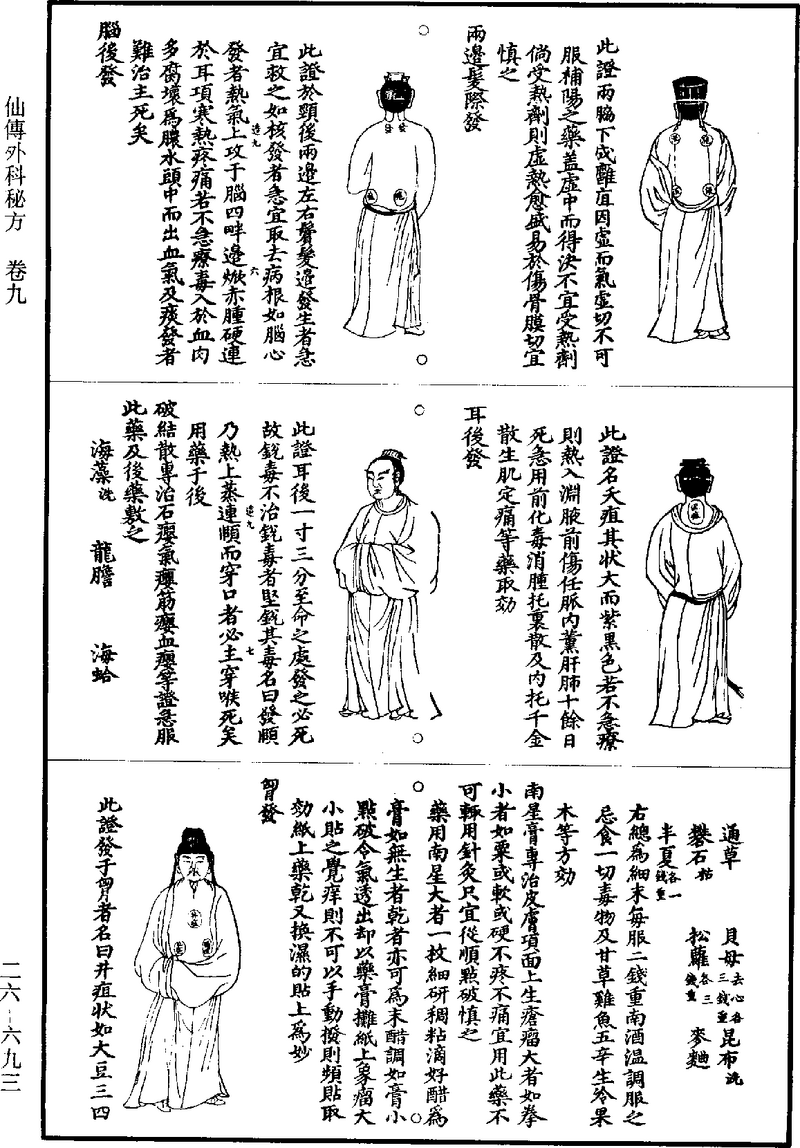 仙傳外科秘方 卷九
二六-六九三
此證兩脇下成癰疽因虛而氣虛切不可
服補陽之藥盖虛中而得決不宜受熱劑
倘受熱劑則虛熱愈盛易於傷骨膜切宜
慎之
兩邊髮際發
此證於頸後兩邊左右鬢髮邊發生者急
宜救之如核發者急宜取去病根如腦心
發者熱氣上攻于腦四畔邊焮赤腫硬連
於耳項寒熱疼痛若不急療毒入於血肉
多腐壞爲膿水頭中而出血氣及痰發者
難治主死矣
腦後發
造九
六
此證名夭疽其狀大而紫黑色若不急療
則熱入淵腋前傷任脈內薰肝肺十餘日
死急用前化毒消腫托裏散及內托千金
散生肌定痛等藥取効
耳後發
此證耳後一寸三分至命之處發之必死
故銳毒不治銳毒者堅銳其毒名曰發頤
乃熱上蒸連頰而穿口者必主穿喉死矣
用藥于後
造九
七
破結散專治石癭氣癭筋癭血癭等證急服
此藥及後藥敷之
海藻洗 龍膽 海蛤
通草 貝母去心各三錢重 昆布洗
礬石枯 松蘿各三錢重 麥麯
半夏各一錢重
右總爲細末每服二錢重南酒温調服之
忌食一切毒物及甘草雞魚五辛生冷果
木等方効
南星膏專治皮膚項面上生瘡瘤大者如拳
小者如粟或軟或硬不疼不痛宜用此藥不
可輒用針灸只宜從順點破慎之
藥用南星大者一枚細研稠粘滴好醋爲
膏如無生者乾者亦可爲末醋調如膏小
點破令氣透出却以藥膏攤紙上象瘤大
小貼之覺痒則不可以手動撥則頻貼取
効紙上藥乾又換濕的貼上爲妙
胷發
此證發于胷者名曰井疽狀如大豆三四